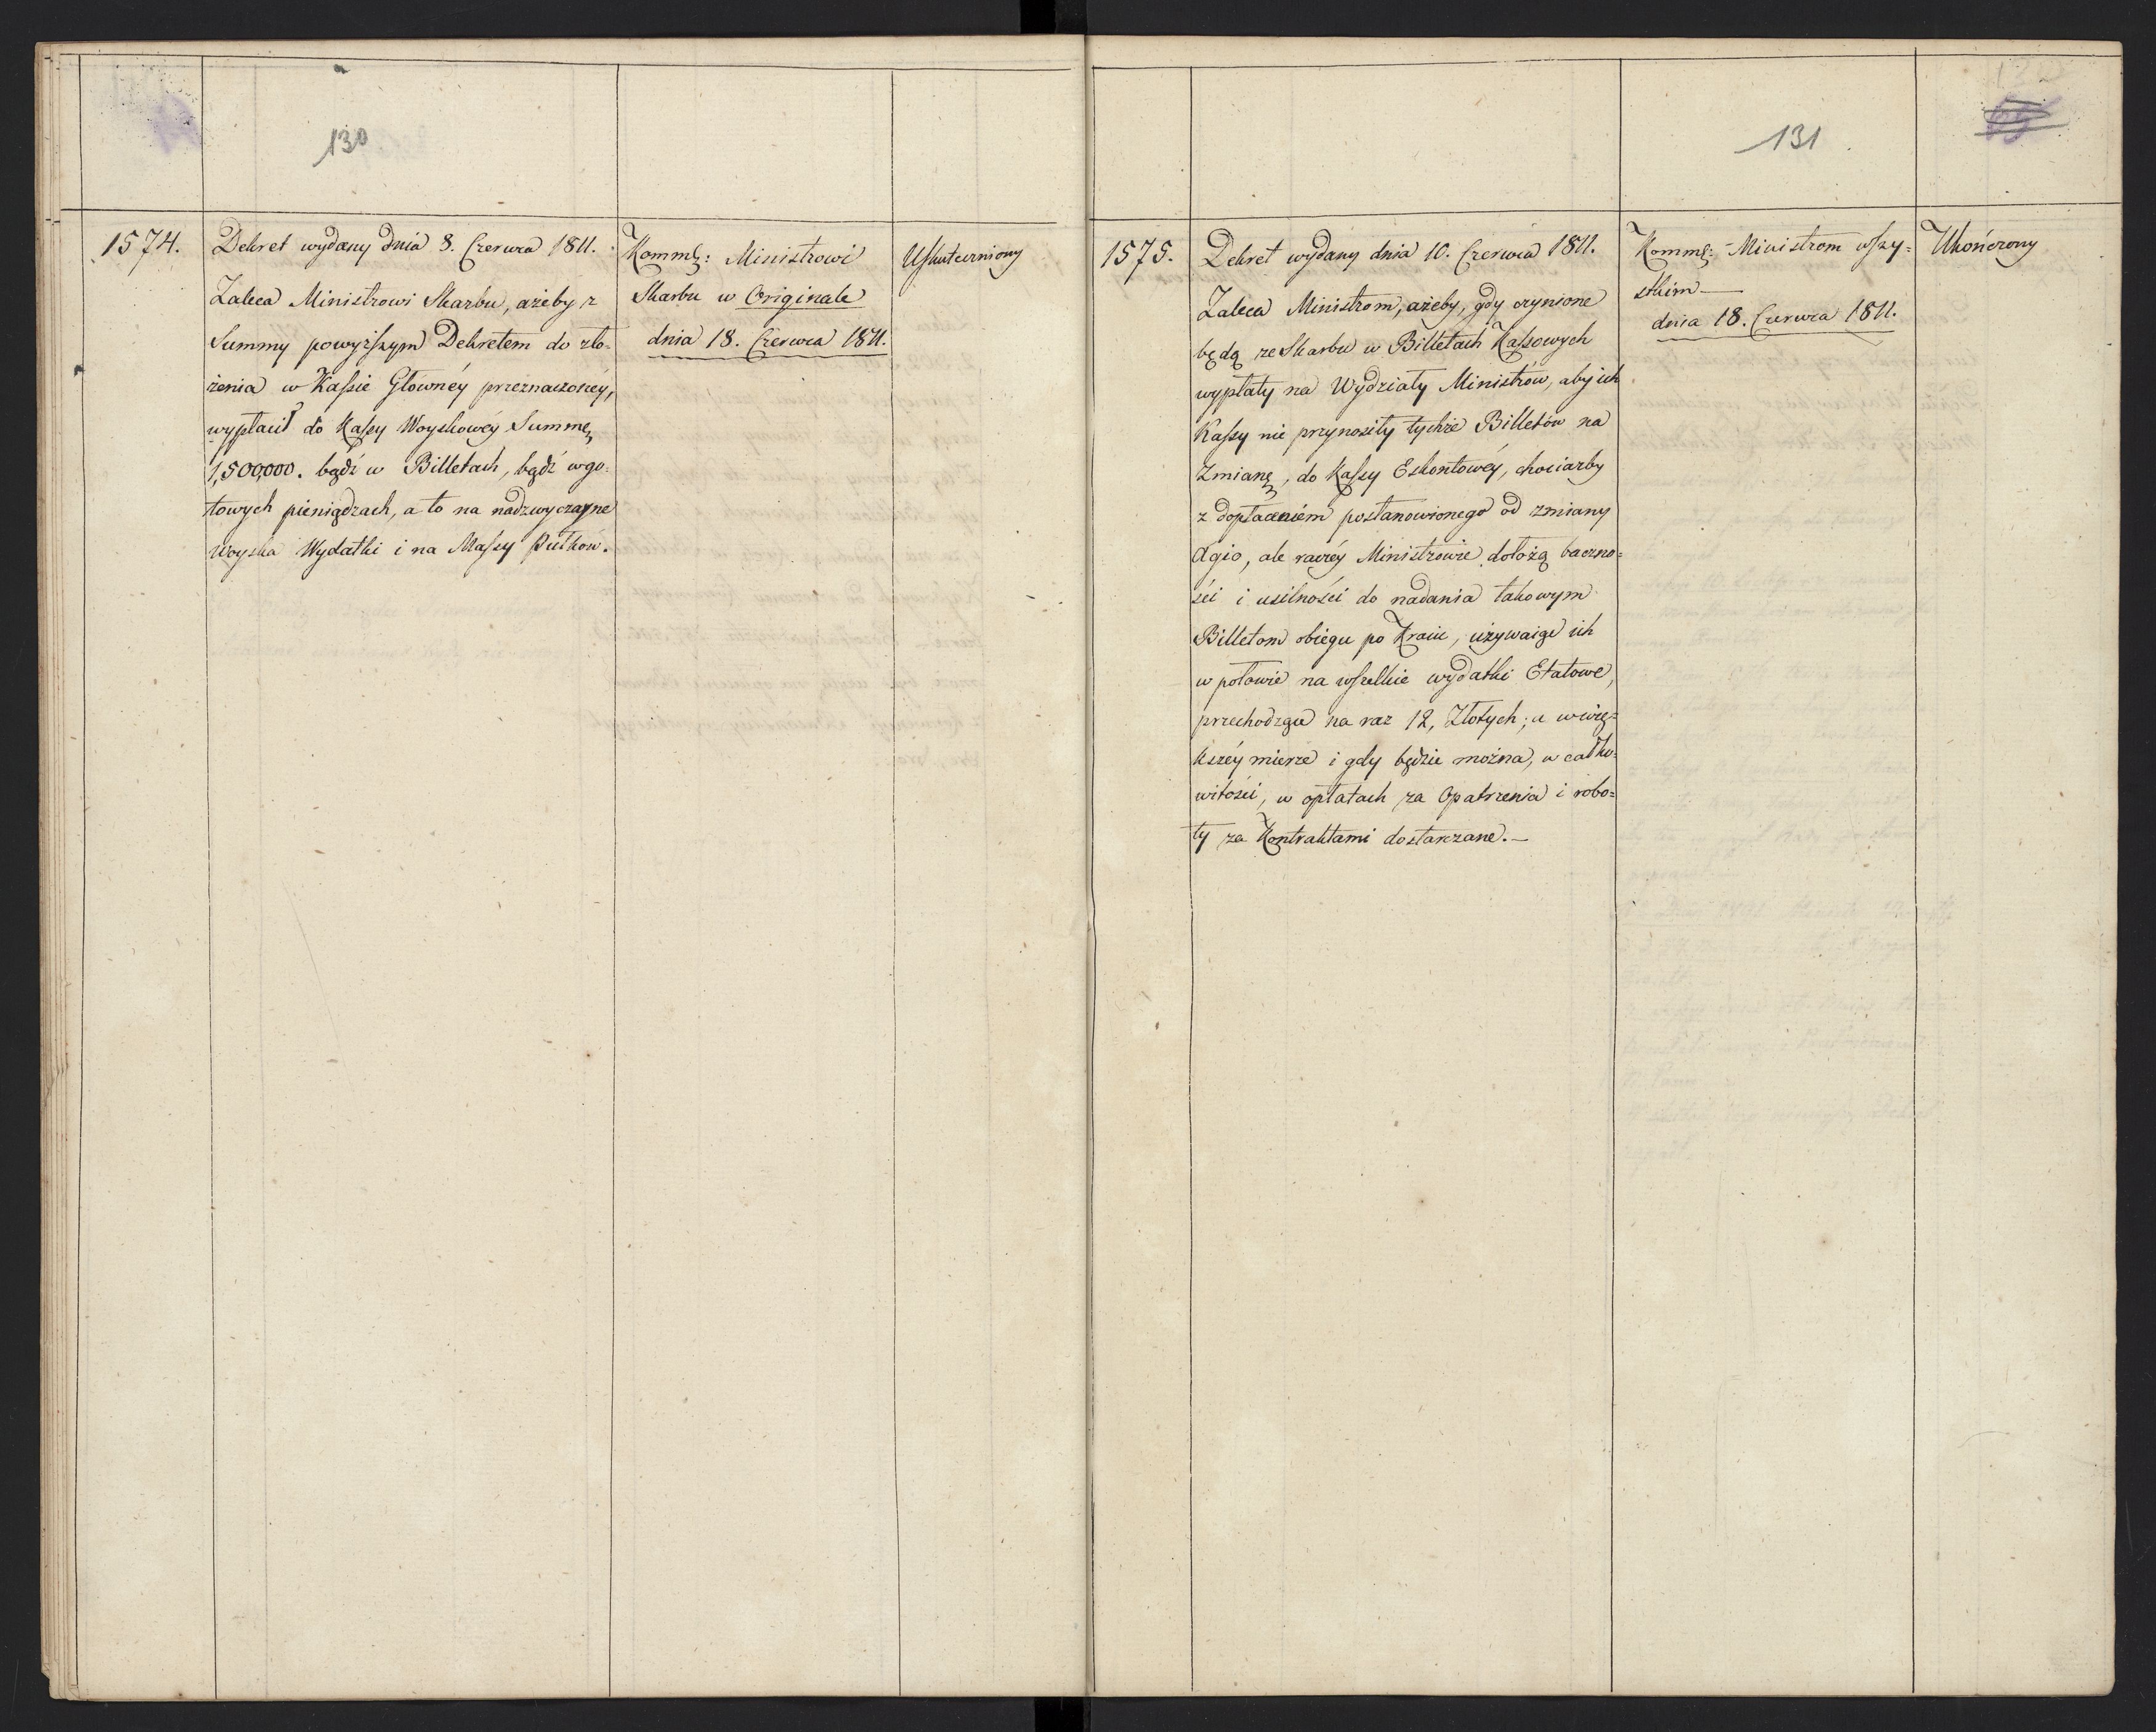 130
1574.
Dekret wydany dnia 8. Czerwca 1811.
Zaleca Ministrowi Skarbu, ażeby z
Summy powyższym Dekretem do zło-
żenia w Kassie Głównéy przeznaczonéy,
wypłacił do Kassy Woyskowéy Summę
1,500,000. bądź w Billetach, bądź w go-
towych pieniądzach, a to na nadzwyczayne
Woyska Wydatki i na Massy Pułków.
Kommę: Ministrowi
Skarbu w Originale
dnia 18. Czerwca 1811.
Uskuteczniony
131
1575.
Dekret wydany dnia 10. Czerwca 1811.
Zaleca Ministrom, ażeby, gdy czynione
będą ze Skarbu w Billetach Kassowych
wypłaty na Wydziały Ministrów, aby ich
Kassy nie przynosiły tychże Billetów na
Zmianę, do Kassy Eskontowéy, chociażby
z dopłaceniém postanowionego od zmiany
Agio, ale raczéy Ministrowie dołożą baczno=
ści i usilności do nadania takowym
Billetom obiegu po Kraiu, używaiąc ich
w połowie na wszelkie wydatki Etatowe,
przechodzące na raz 12, Złotych; a w wię=
kszéy mierze i gdy będzie można, w całko=
witości, w opłatach za Opatrzenia i robo=
ty za Kontraktami dostarczane.—
Kommę: Ministrom wszy=
stkim—
dnia 18. Czerwca 1811.
Ukończony